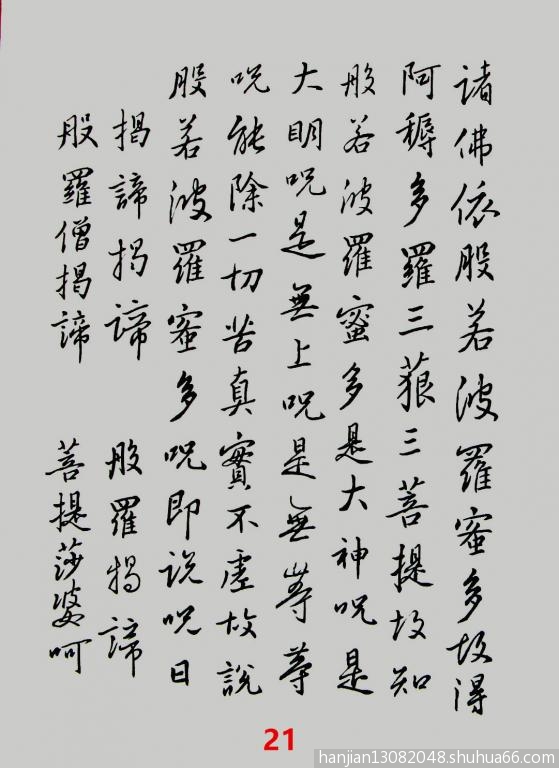 諸佛依般若波羅蜜多故得
阿耨多羅三藐三菩提故知
般若波羅蜜多是大神呪是
大明呪是無上呪是無等等
呪能除一切苦真實不虛故說
般若波羅蜜多呪即說呪曰
揭諦揭諦 般羅揭諦
般羅僧揭諦 菩提莎婆呵
21
hanjian13082048.shuhua66.com